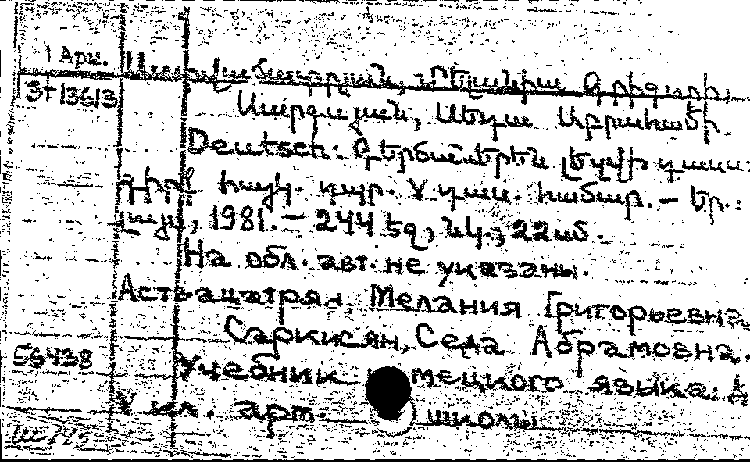 Арм.
Աստվածատրյան, Մելանիա Գրիգորի,
3Т13613
Սարգսյան, Սեդա Աբրահամի
Deutsch: Գերմաներեն լեզվի դաս
գիրք հայկ. դպր. V դաս. համար. — Եր.:
Լույս, 1981. — 244 էջ, նկ., 22սմ.
На обл. авт. не указаны.
Аствацатрян, Мелания Григорьевна,
Саркисян, Седа Абрамовна.
56438
Учебник мецкого языка:
V кл. арм. школы